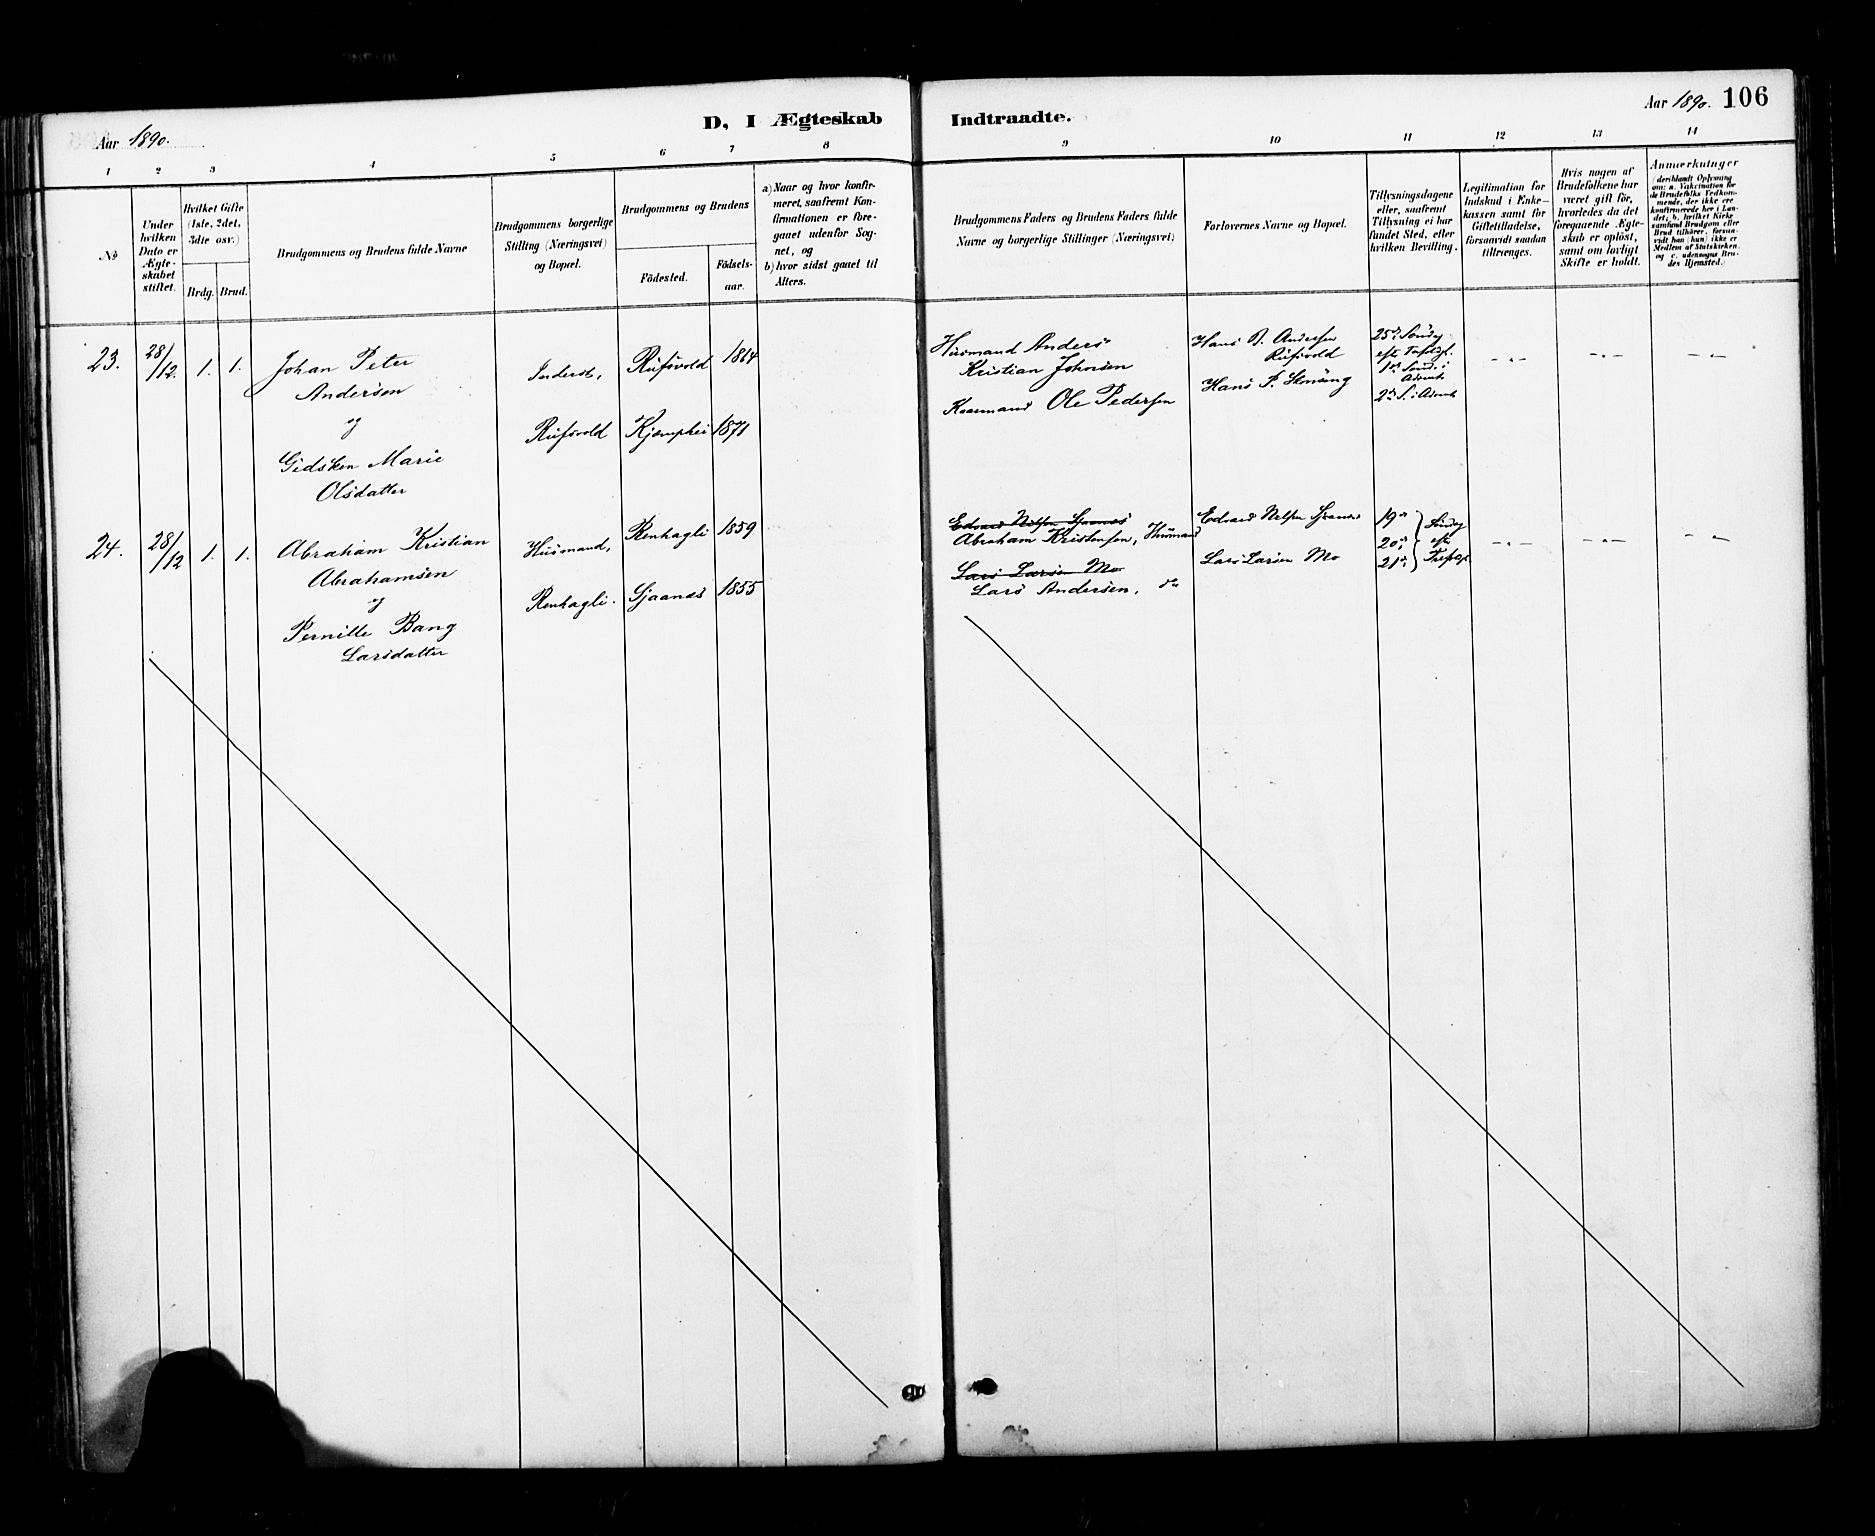 Aar 1890.
D, I Ægteskab
Indtraadte.
Aar 1890. 106
1 2 3 4 5 6 7 8 9 10 11 12 13 14
No
Under
hvilken
Dato er
Ægte-
skabet
stiftet.
Hvilket Gifte
(1ste, 2det,
3die osv.)
Brdg. Brud.
Brudgommens og Brudens fulde Navne
Brudgommens borgerlige
Stilling (Næringsvei)
og Bopæl.
Brudgommens og Brudens
Födested.
Födsels-
aar.
a) Naar og hvor konfir-
meret, saafremt Kon-
firmationen er fore-
gaaet udenfor Sog-
net, og
b) hvor sidst gaaet til
Alters.
Brudgommens Faders og Brudens Faders fulde
Navne og borgerlige Stillinger (Næringsvei)
Forlovernes Navne og Bopæl.
Tillysningsdagene
eller, saafremt
Tillysning ei har
fundet Sted, efter
hvilken Bevilling.
Legitimation for
Indskud i Enke-
kassen samt for
Giftetilladelse,
forsaavidt saadan
tiltrænges.
Hvis nogen af
Brudefolkene har
været gift för,
hvorledes da det
foregaaende Ægte-
skab er oplöst,
samt om lovligt
Skifte er holdt.
Anmærkninger
(deriblandt Oplysning
om: a. Vakcination for
de Brudefolks Vedkom-
mende, der ikke ere
konfirmerede her i Lan-
det; b. hvilket Kirke
samfund Brudgom eller
Brud tilhörer, forsaa-
vidt han (hun) ikke er
Medlem af Statskirken.
og c. udensogns Bru-
des Hjemsted.)
23. 28/12. 1. 1.
Johan Peter
Andersen
og
Gidsken Marie
Olsdatter
Inderst,
Rufsvold
Rufsvold 1864
Kjæmphei 1871
Husmand Anders
Kristian Johnsen
Kaarmand Ole Pedersen
Hans Andersen
Rufsvold
Hans P.
25de Söndg
eft. Trefdgf.
1ste Sönd. i
Advent
2den S. i Advent
24. 28/12 1. 1.
Abraham Kristian
Abrahamsen
og
Pernille Bang
Larsdatter
Husmand,
Renhagli.
Renhagli 1859
Sjaanes 1855
Edvard Nilsen Sjaanes
Abraham Kristensen, Husmand
Lars Larsen Mo
Lars Andersen, do
Edvard Nilsen Sjaanes
Lars Larsen Mo
19de
20de
21de
Söndg
eft.
Trefdgf.